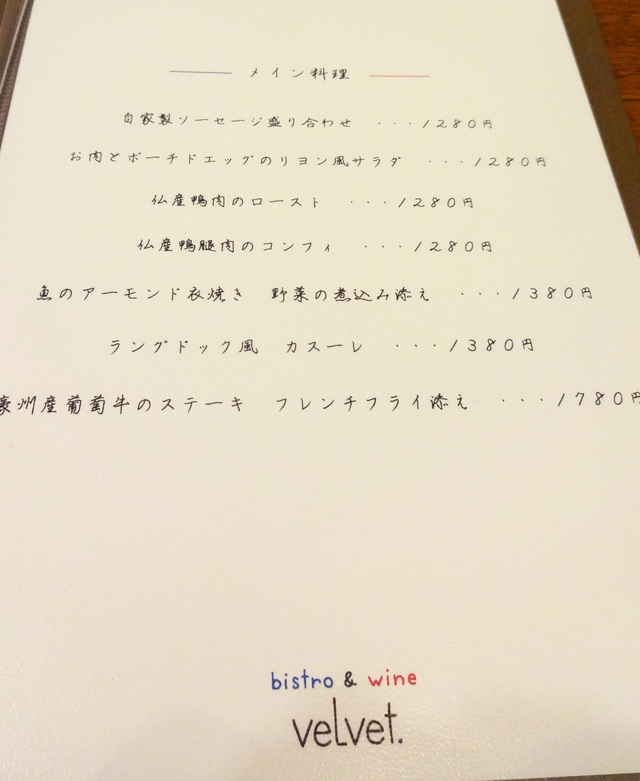 メイン料理
自家製ソーセージ盛り合わせ ・・・1280円
お肉とポーチドエッグのリヨン風サラダ ・・・1280円
仏産鴨肉のロースト ・・・1280円
仏産鴨腿肉のコンフィ ・・・1280円
魚のアーモンド衣焼き 野菜の煮込み添え ・・・1380円
ラングドック風 カスーレ ・・・1380円
豪州産葡萄牛のステーキ フレンチフライ添え ・・・1780円
bistro & wine
velvet.